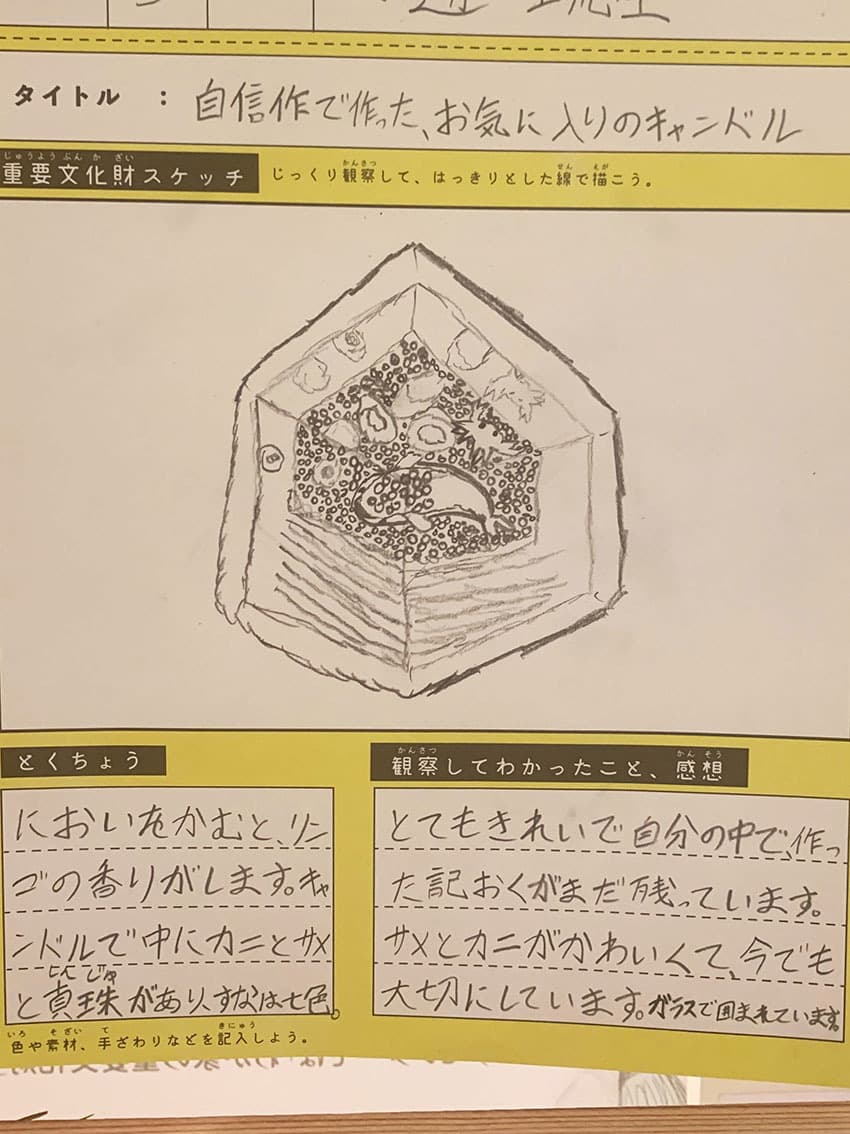 タイトル : 自信作で作った、お気に入りのキャンドル
じゅうようぶんかざい
重要文化財スケッチ
かんさつ せん えが
じっくり観察して、はっきりとした線で描こう。
とくちょう
においをかむと、リン
ゴの香りがします。キャ
ンドルで中にカニとサメ
しんじゅ
と真珠があり、すなは七色。
いろ そざい て きにゅう
色や素材、手ざわりなどを記入しよう。
かんさつ かんそう
観察してわかったこと、感想
とてもきれいで自分の中で、作っ
た記おくがまだ残っています。
サメとカニがかわいくて、今でも
大切にしています。ガラスで囲まれています。